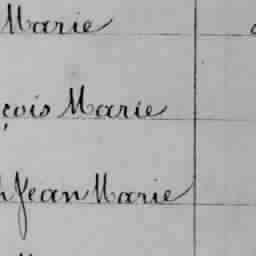 Marie
çois Marie
h Jean Marie